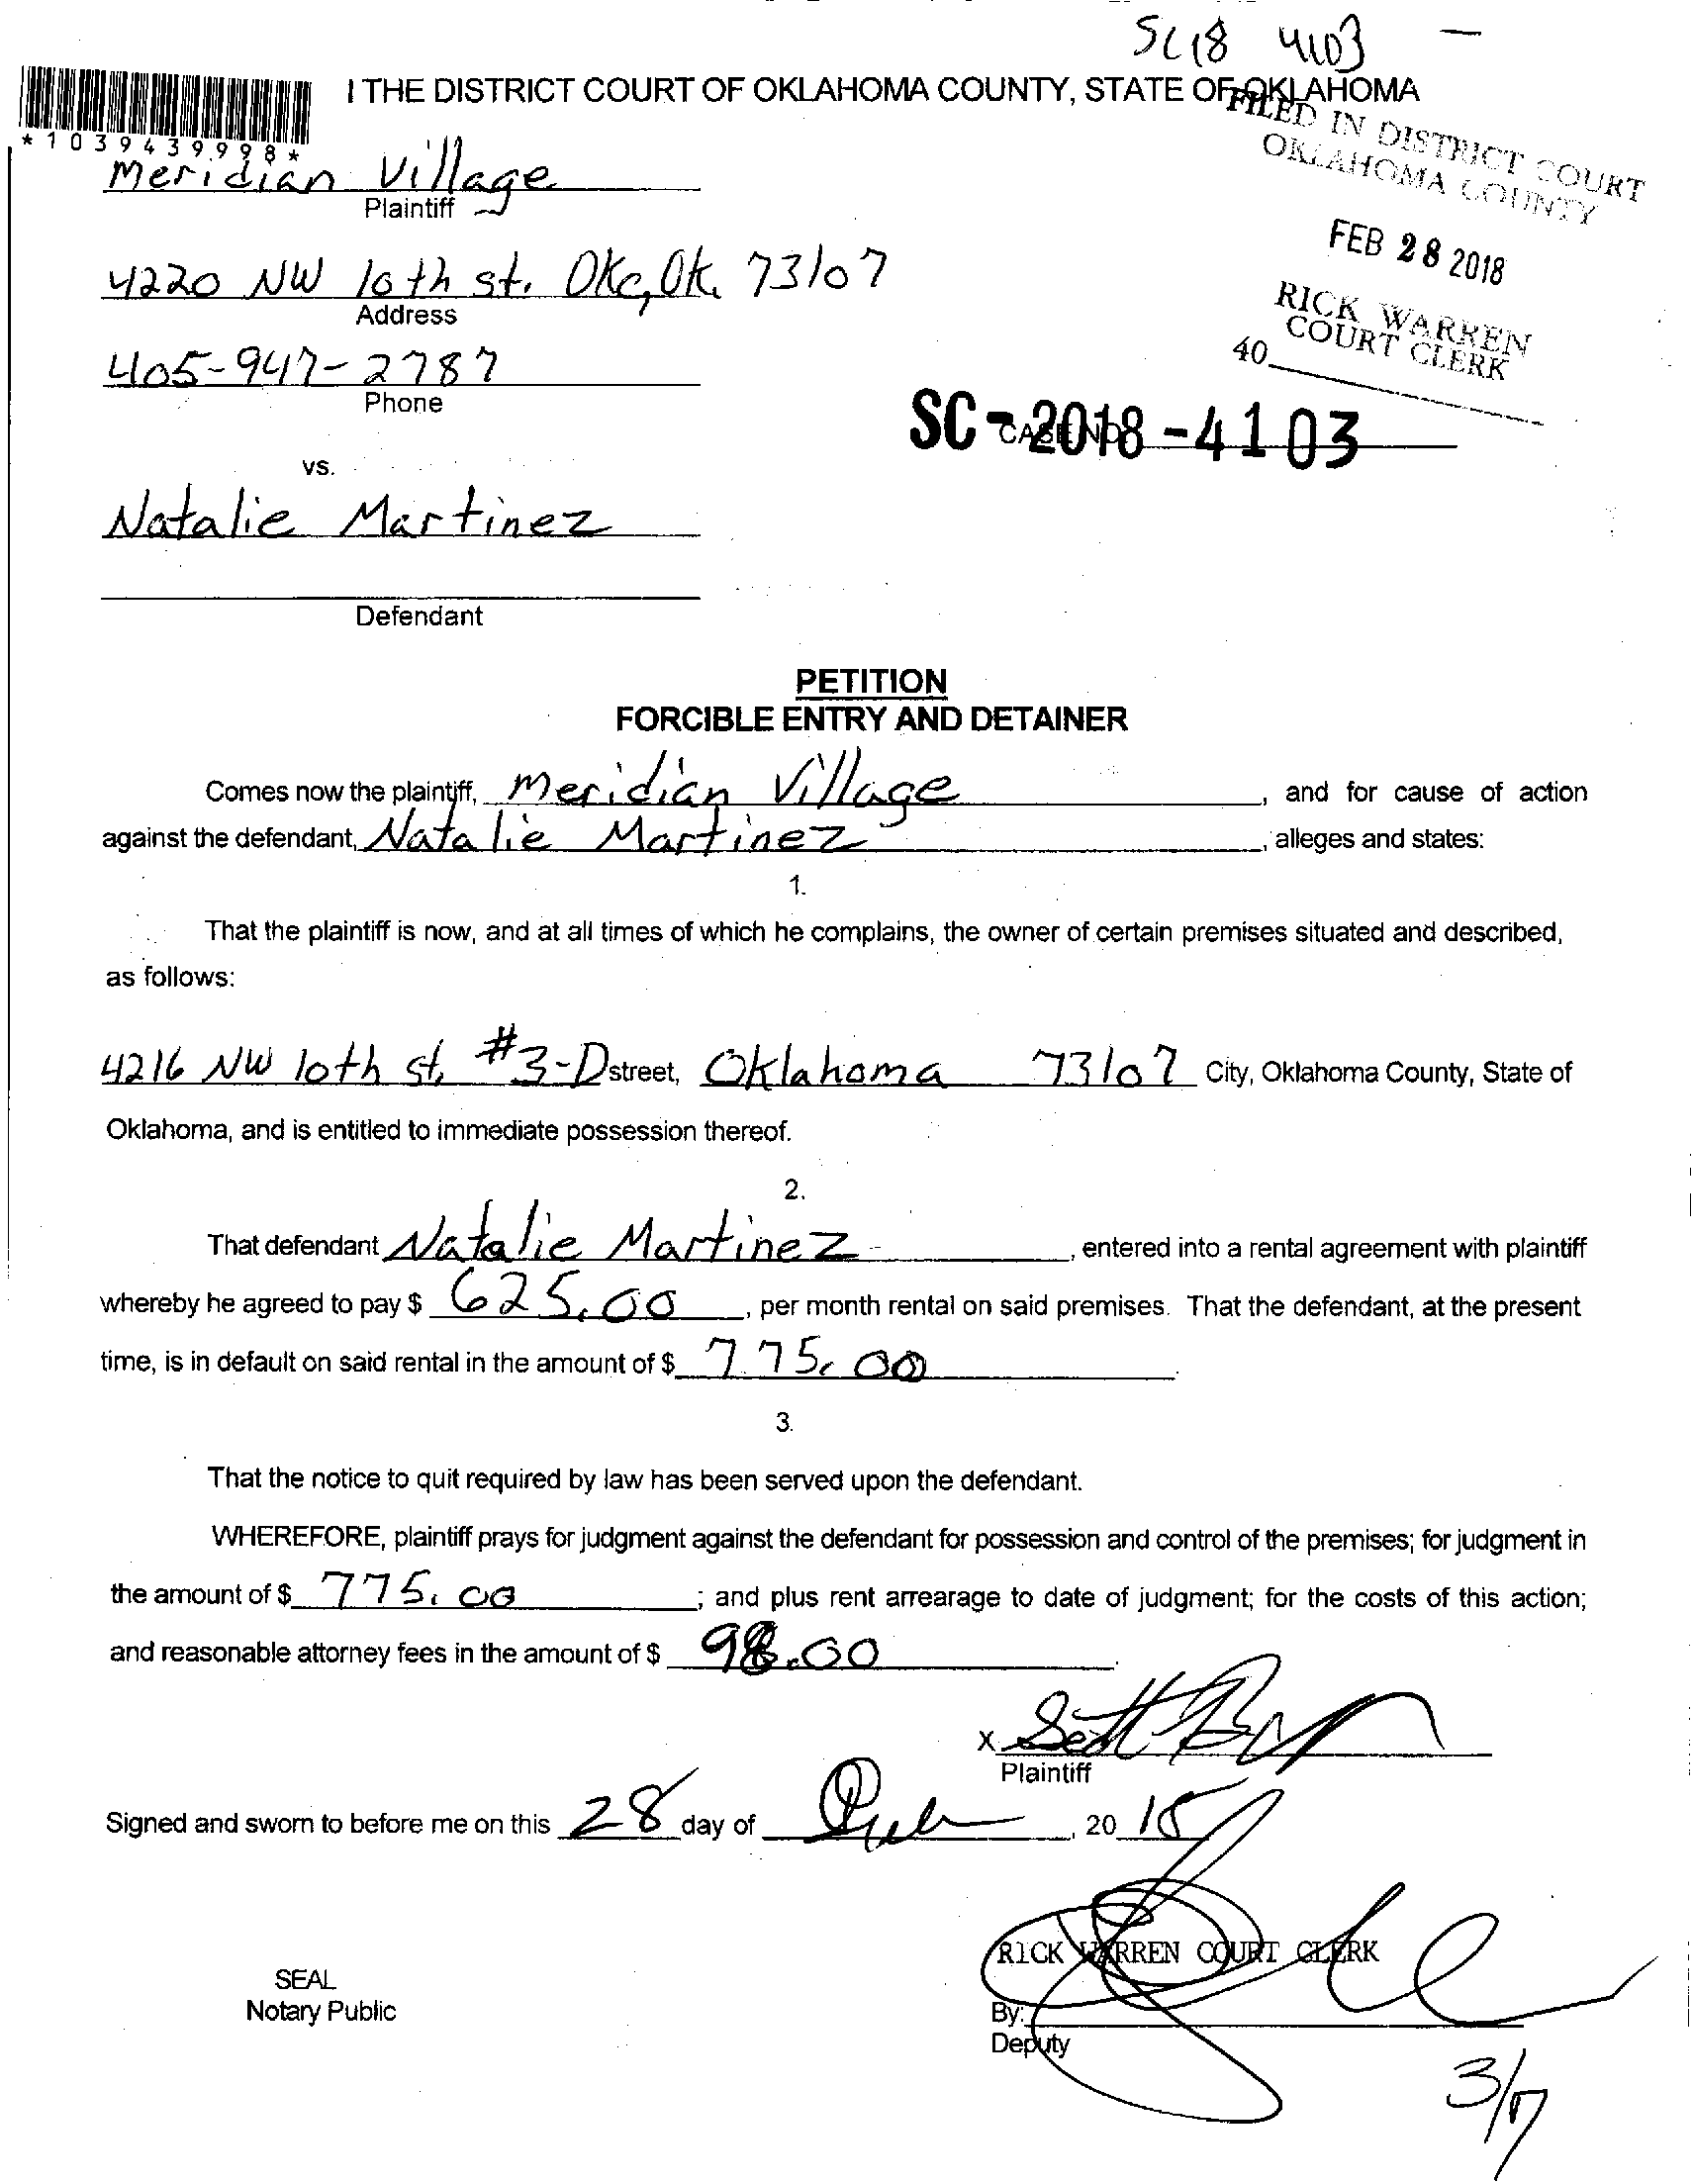 SC18 4103 –
I THE DISTRICT COURT OF OKLAHOMA COUNTY, STATE OF OKLAHOMA
FILED IN DISTRICT COURT
OKLAHOMA COUNTY
*1039439998*
Meridian Village
Plaintiff
FEB 28 2018
4220 NW 10th st. Okc, Ok. 73107
Address
RICK WARREN
COURT CLERK
40
405-947-2787
Phone
CASE NO.
SC-2018-4103
vs.
Natalie Martinez
Defendant
PETITION
FORCIBLE ENTRY AND DETAINER
Comes now the plaintiff, Meridian Village, and for cause of action
against the defendant, Natalie Martinez, alleges and states:
1.
That the plaintiff is now, and at all times of which he complains, the owner of certain premises situated and described,
as follows:
4216 NW 10th st. #3-D street, Oklahoma 73107 City, Oklahoma County, State of
Oklahoma, and is entitled to immediate possession thereof.
2.
That defendant Natalie Martinez, entered into a rental agreement with plaintiff
whereby he agreed to pay $ 625.00, per month rental on said premises. That the defendant, at the present
time, is in default on said rental in the amount of $ 775.00.
3.
That the notice to quit required by law has been served upon the defendant.
WHEREFORE, plaintiff prays for judgment against the defendant for possession and control of the premises; for judgment in
the amount of $ 775.00; and plus rent arrearage to date of judgment; for the costs of this action;
and reasonable attorney fees in the amount of $ 98.00.
X
Plaintiff
Signed and sworn to before me on this 28 day of , 20 18
RICK WARREN COURT CLERK
SEAL
Notary Public
By:
Deputy